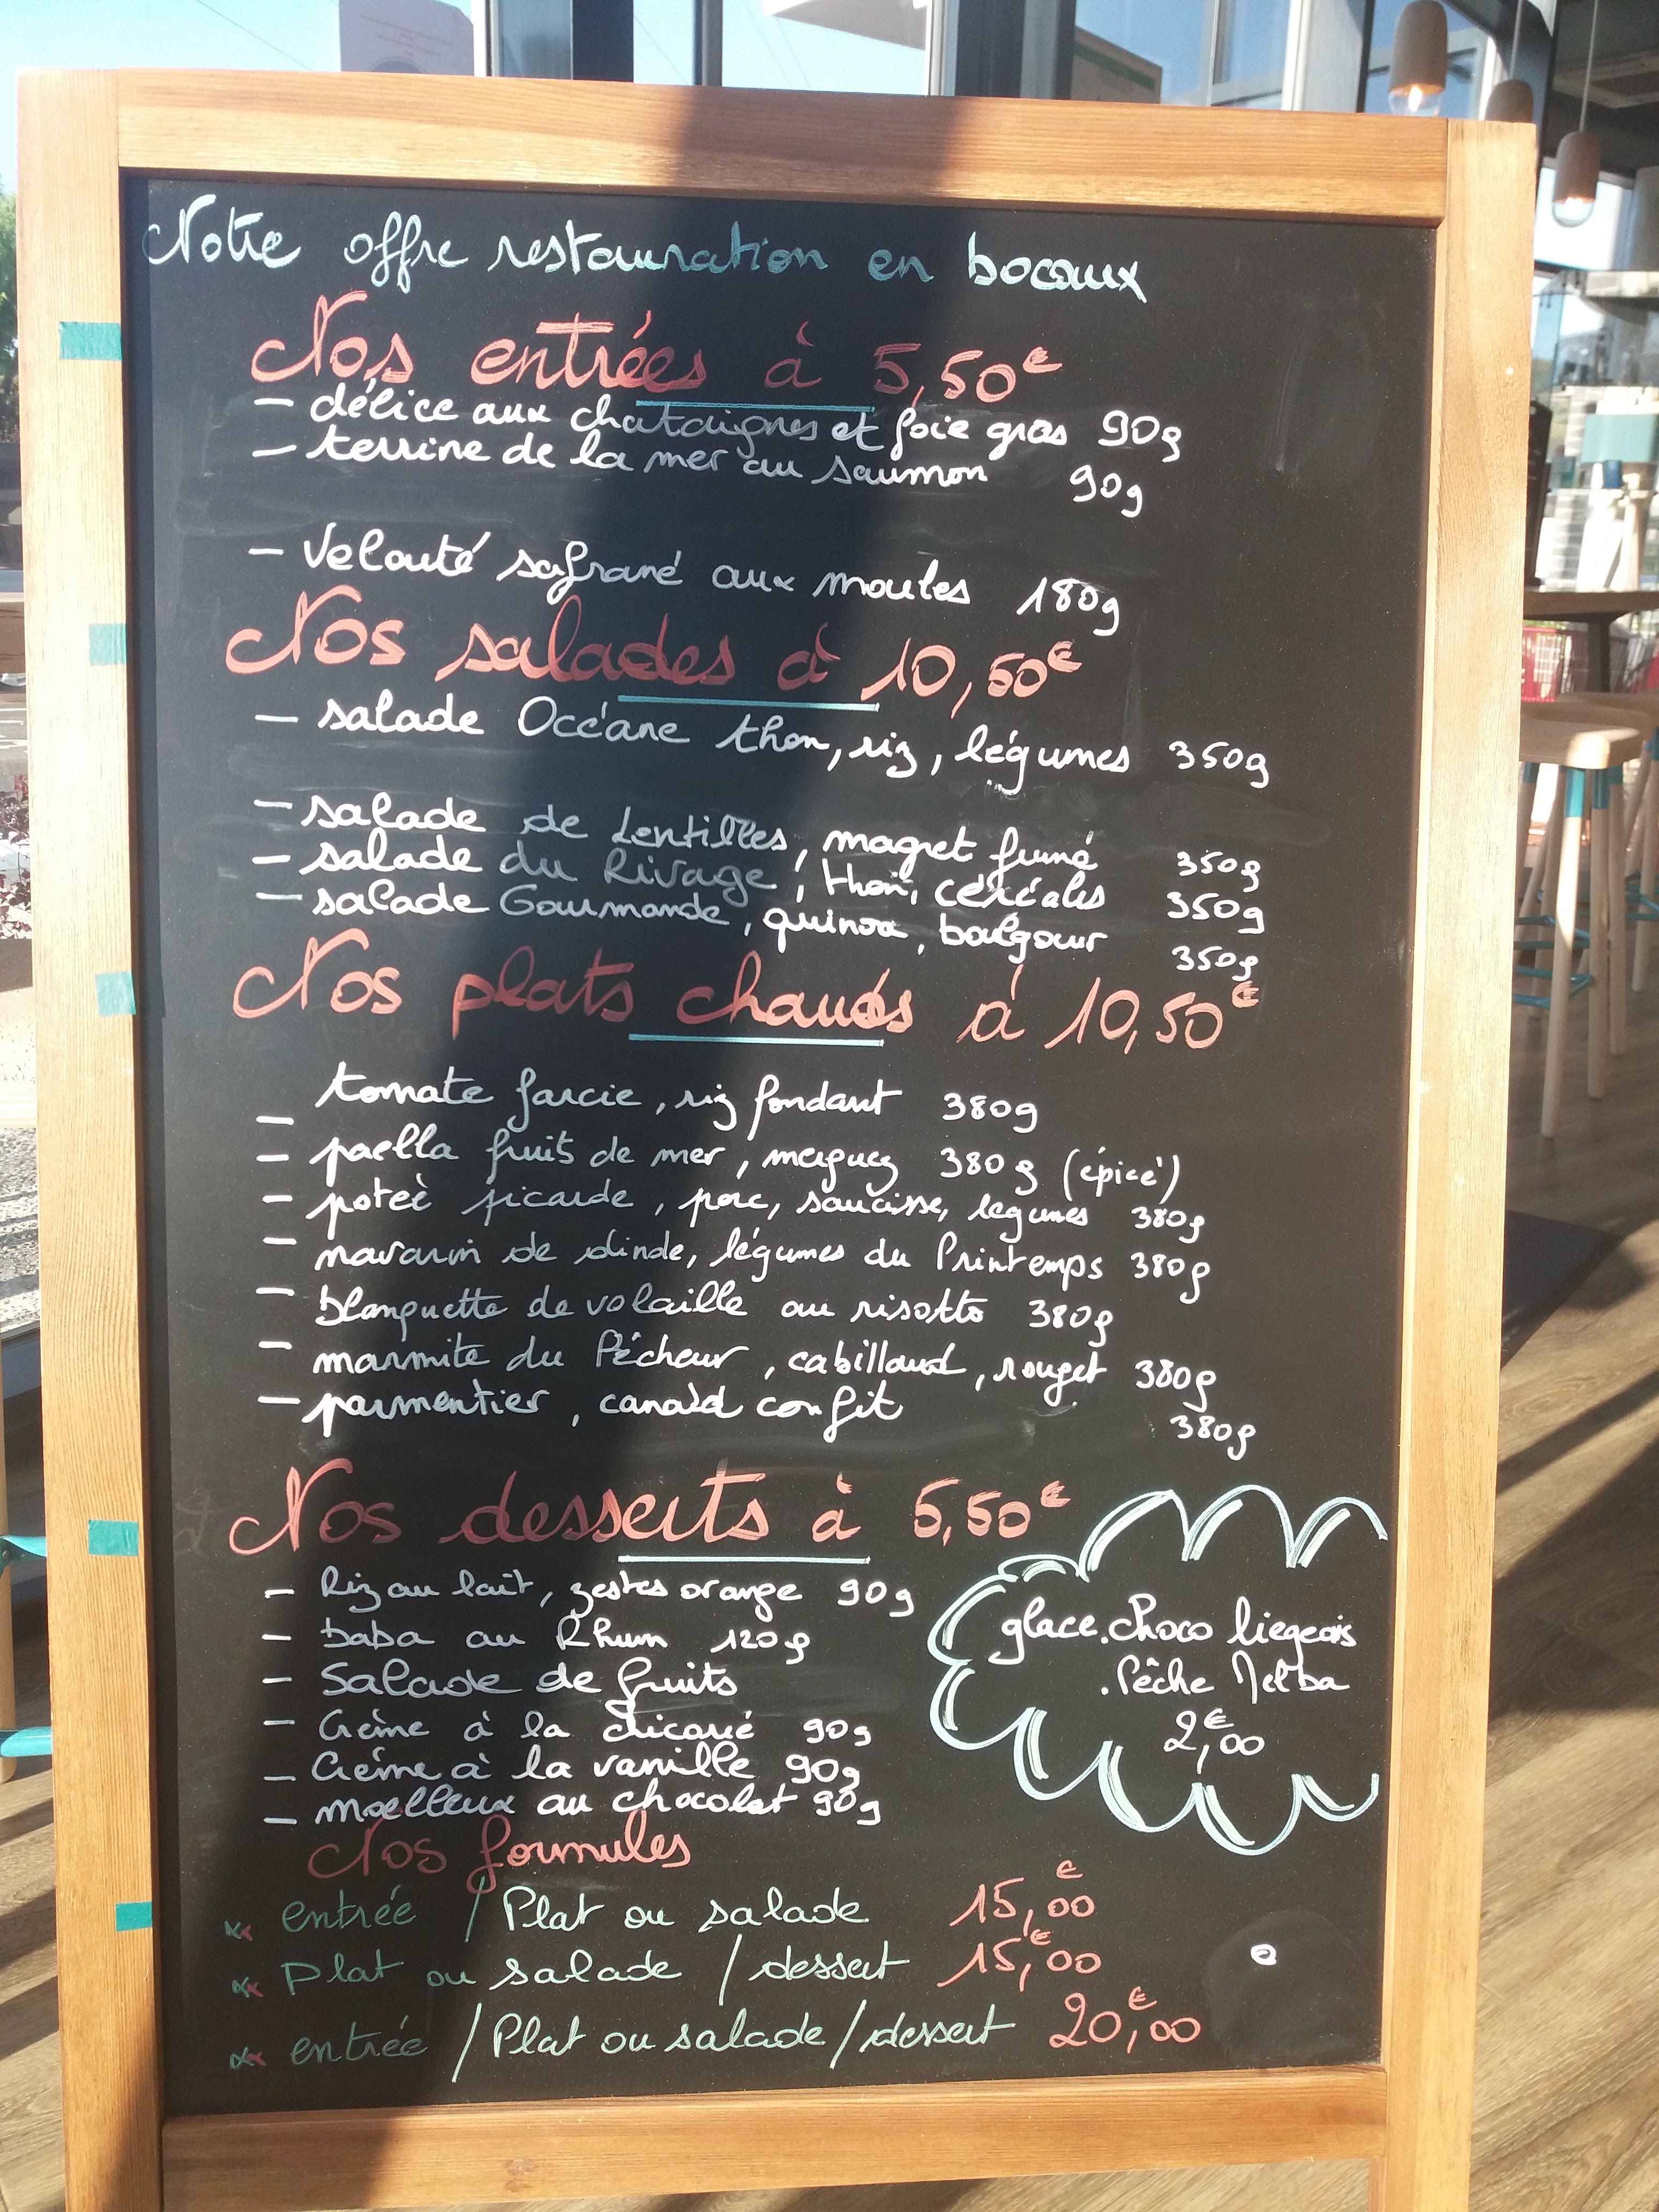 Notre offre restauration en bocaux
Nos entrées à 5,50€
- délice aux chataignes et foie gras 90g
- terrine de la mer au saumon 90g
- Velouté safrané aux moules 180g
Nos salades à 10,50€
- salade Océane thon, riz, légumes 350g
- salade de Lentilles, magret fumé 350g
- salade du Rivage, thon, céréales 350g
- salade Gourmande, quinoa, boulgour 350g
Nos plats chauds à 10,50€
- tomate farcie, riz fondant 380g
- paella fruits de mer, merguez 380g (épicé)
- poteè picarde, porc, saucisse, légumes 380g
- navarin de dinde, légumes du Printemps 380g
- blanquette de volaille au risotto 380g
- marmite du Pêcheur, cabillaud, rouget 380g
- parmentier, canard confit 380g
Nos desserts à 5,50€
- Riz au lait, zestes orange 90g
- baba au Rhum 120g
- Salade de fruits
- Crème à la chicorée 90g
- Crème à la vanille 90g
- moelleux au chocolat 90g
glace. choco liegeois
. Pêche Melba
2,00€
Nos formules
entrée / Plat ou salade 15,00€
Plat ou salade / dessert 15,00€
entrée / Plat ou salade / dessert 20,00€